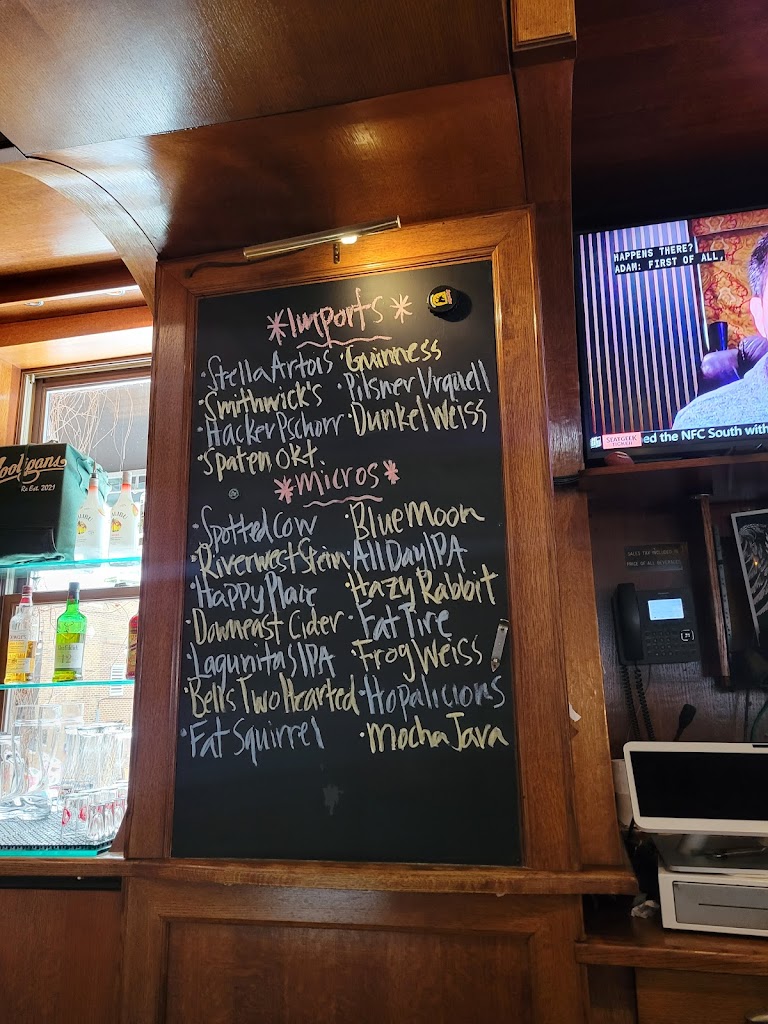 *Imports*
·Stella Artois
·Smithwick's
·Hacker Pschorr
·Spaten, Okt.
·Guinness
·Pilsner Urquell
·Dunkel Weiss
*micros*
·Spotted Cow
·Riverwest Stein
·Happy Place
·Downeast Cider
·Lagunitas IPA
·Bells Two Hearted
·Fat Squirrel
·Blue Moon
·All Day IPA
·Hazy Rabbit
·Fat Tire
·Frog Weiss
·Hopalicious
·Mocha Java
HAPPENS THERE?
ADAM: FIRST OF ALL,
SEATGEEK
ed the NFC South with
SALES TAX INCLUDED IN
PRICE OF ALL BEVERAGES
Est. 2021